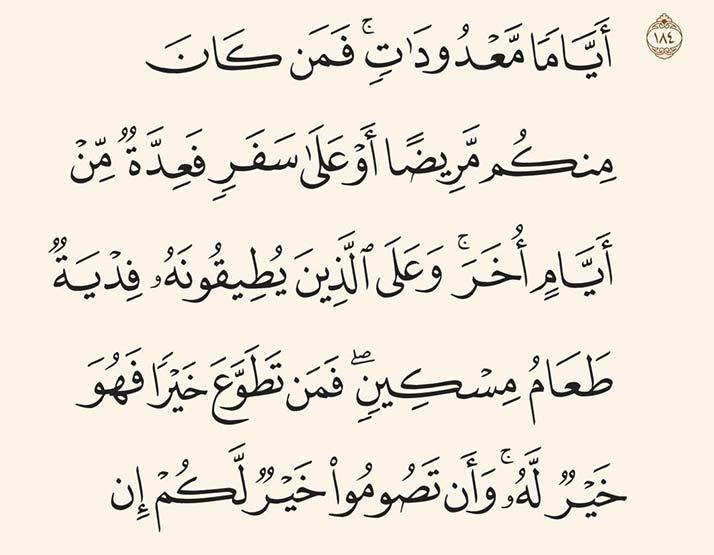 ١٨٤
أَيَّامًا مَّعْدُودَٰتٍۚ فَمَن كَانَ
مِنكُم مَّرِيضًا أَوْ عَلَىٰ سَفَرٍ فَعِدَّةٌ مِّنْ
أَيَّامٍ أُخَرَۚ وَعَلَى ٱلَّذِينَ يُطِيقُونَهُۥ فِدْيَةٌ
طَعَامُ مِسْكِينٍۖ فَمَن تَطَوَّعَ خَيْرًا فَهُوَ
خَيْرٌ لَّهُۥۚ وَأَن تَصُومُوا۟ خَيْرٌ لَّكُمْ إِن